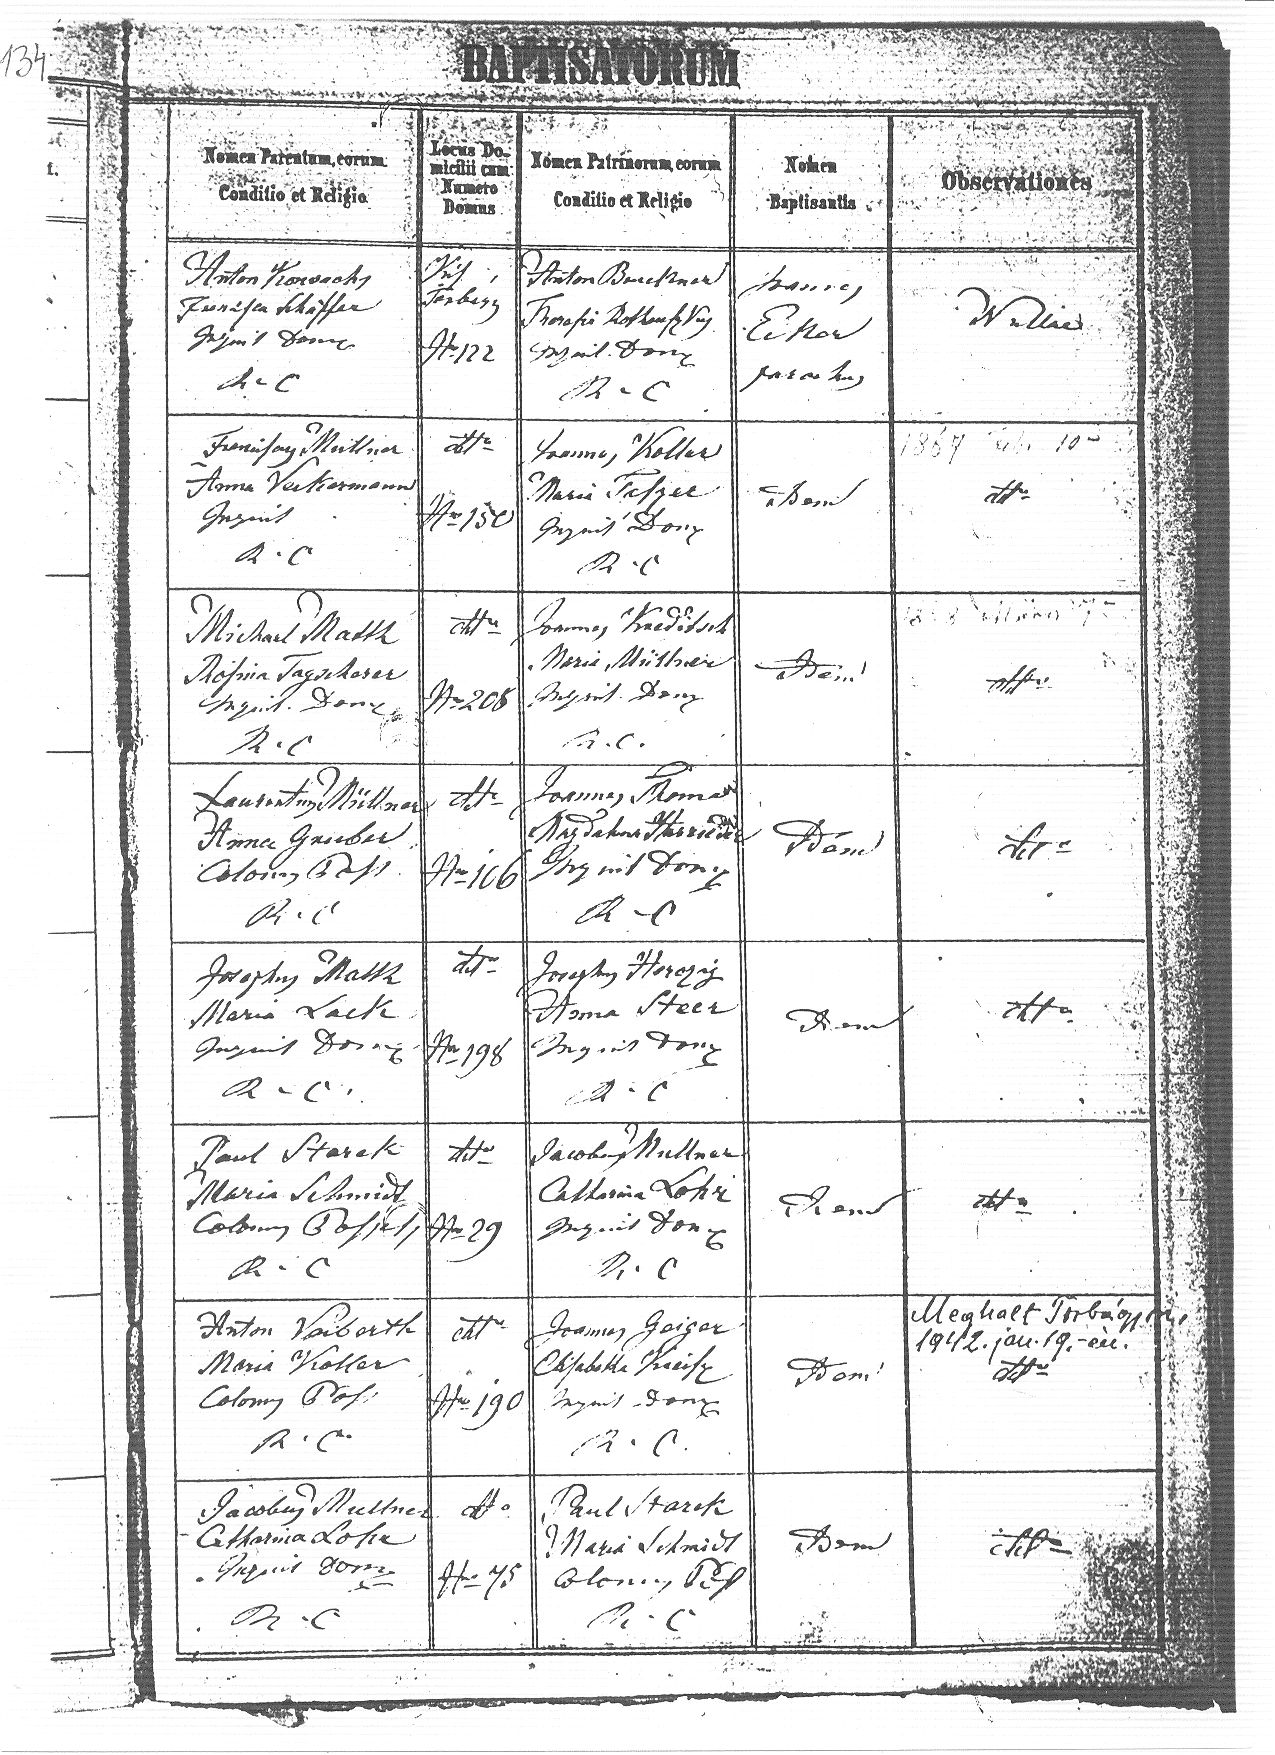 134
BAPTISATORUM
Nomen Parentum, eorum
Conditio et Religio
Locus Do-
micilii cum
Numero
Domus
Nomen Patrinorum, eorum
Conditio et Religio
Nomen
Baptisantis
Observationes
Anton
Schäffer
Inquil Dom
R - C
Törbágy
Nro 122
Anton Bruckner
Inquil. Dom
R - C
Joannes
Ecker
parochus
Nullae
Franciscus Müllner
Anna Veckermann
Inquil
R - C
dtto
Nro 150
Joannes Koller
Maria
Inquil Dom
R - C
Idem
1867 10
dtto
Michael Matth
Rosina Tagscherer
Inquil. Dom
R - C
dtto
Nro 208
Joannes
Maria Müllner
Inquil. Dom
R. C.
Idem
dtto
Laurentius Müllner
Anna Gruber
Colonus Poss
R - C
dtto
Nro 106
Joannes Thoma
Magdalena
Inquil Dom
R - C
Idem
dtto
Josephus Matth
Maria Lack
Inquil Dom
R - C
dtto
Nro 198
Josephus Herczig
Anna Steer
Inquil Dom
R - C
Idem
dtto
Paul Starck
Maria Schmidt
Colonus Possess
R - C
dtto
Nro 29
Jacobus Mullner
Catharina Lohr
Inquil Dom
R - C
Idem
dtto
Anton Veiberth
Maria Koller
Colonus Poss
R - C
dtto
Nro 190
Joannes Geiger
Elisabetha
Inquil Dom
R - C.
Idem
Meghalt Törbágyon,
1942. jan. 19.-én.
dtto
Jacobus Mullner
Catharina Lohr
Inquil Dom
R - C
dtto
Nro 75
Paul Starck
Maria Schmidt
Colonus Poss
R - C
Idem
dtto